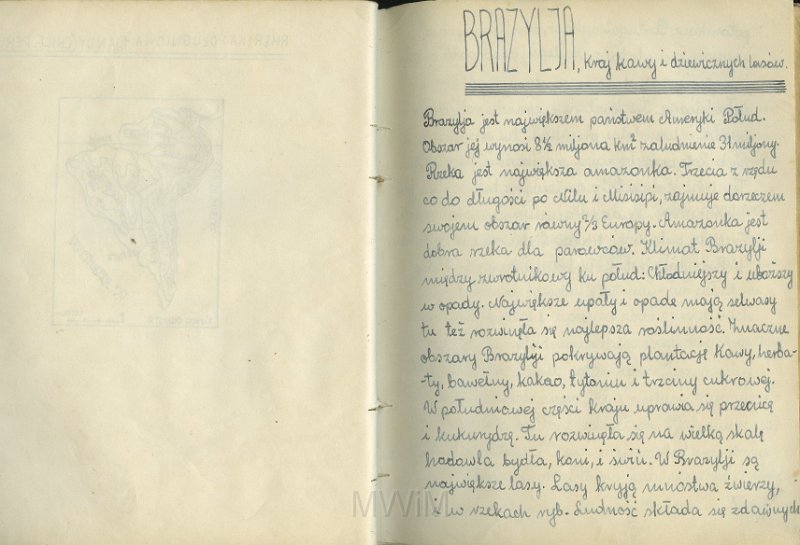 BRAZYLJA, kraj kawy i dziewicznych lasów.
Brazylja jest największem państwem Ameryki Połud.
Obszar jej wynosi 8½ miljona km² zaludnienie 31 miljony.
Rzeka jest największa amazonka. Trzecia z rzędu
co do długości po Nilu i Misisipi, zajmuje dorzeczem
swojem obszar równy 2/3 Europy. Amazonka jest
dobra rzeka dla parowców. Klimat Brazylji
między zwrotnikowy ku połud: Chłodniejszy i uboższy
w opady. Największe upały i opade mają selwasy
tu też rozwinęła się najlepsza roślinność. Znaczne
obszary Brazylji pokrywają plantację Kawy, herba-
-ty, bawełny, kakao, tytoniu i trzciny cukrowej.
W południowej części kraju uprawia się przenicę
i kukurydzę. Tu rozwinęła się na wielką skalę
hodowla bydła, koni, i świń. W Brazylji są
największe lasy. Lasy kryją mnóstwa źwierzy,
i w rzekach ryb. Ludność składa się z dawnych
MWiM